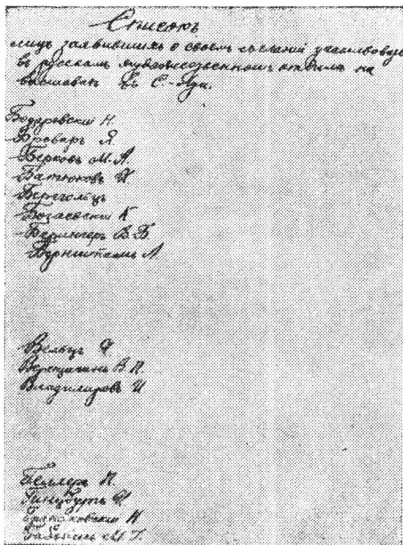 Списокъ
лицъ заявившихъ о своемъ желаніи участвовать
въ русскомъ художественномъ отдѣлѣ на
выставкѣ въ С.-Луи.
Бодаровскій Н.
Броваръ Я.
Берковъ М.А.
Батюковъ И.
Бернгольцъ
Беренгеръ В.Б.
Бернштамъ Л.
Вельцъ Ф.
Верещагинъ В.П.
Владимировъ И
Геллеръ П.
Гинцбургъ И.
М.Г.